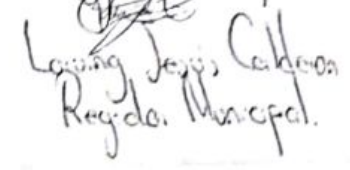 Jesus Calderon
Regidor Municipal.